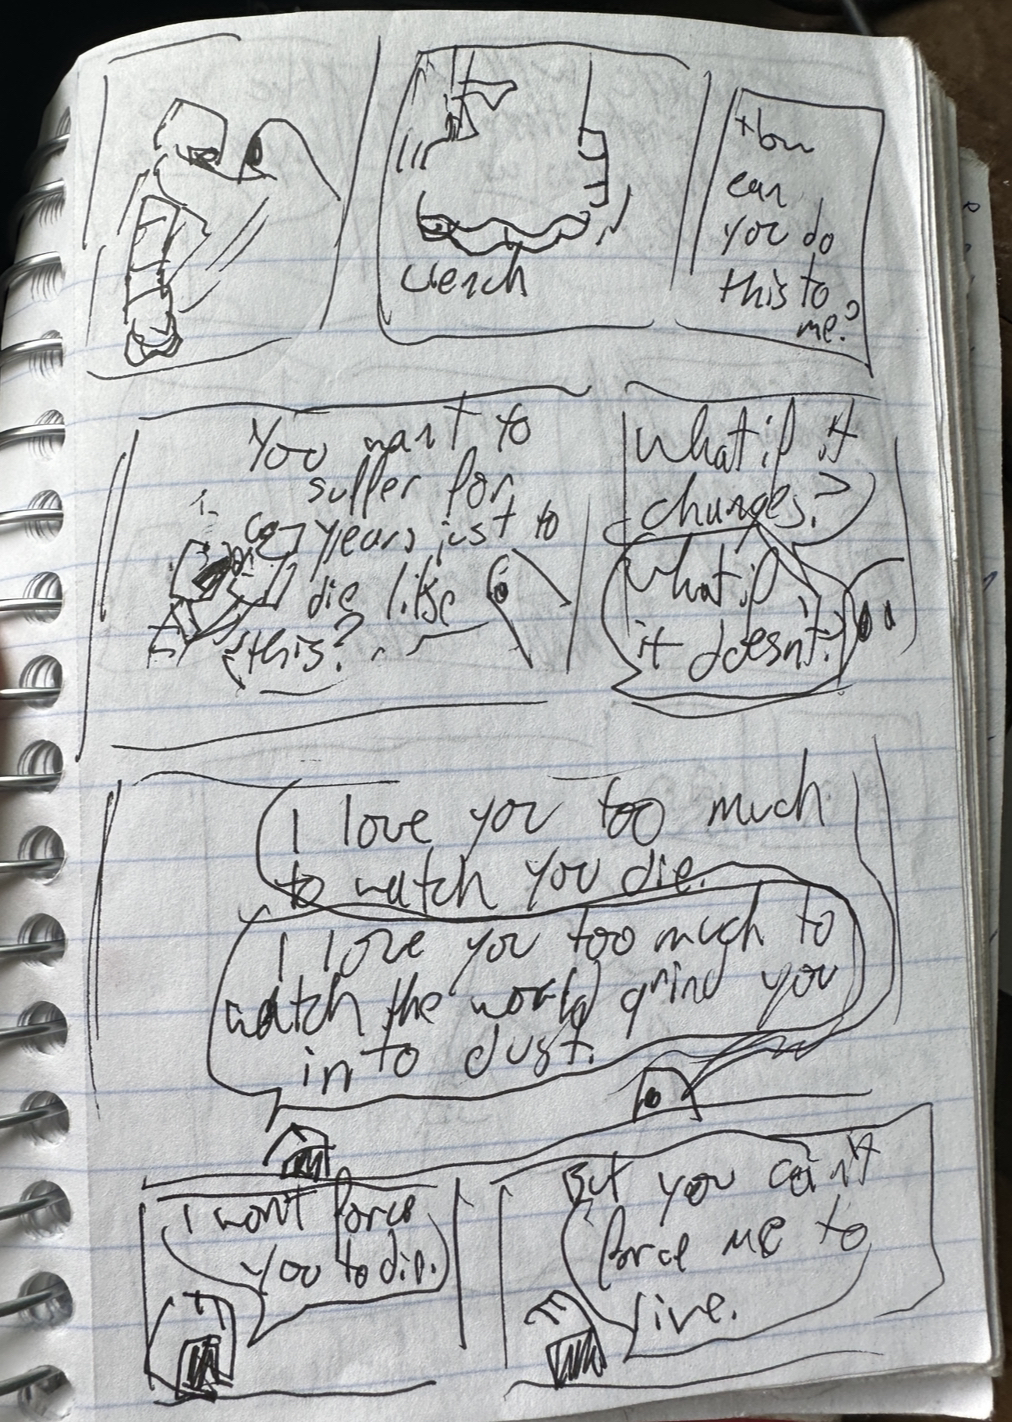 How
can
you do
this to
me?
You want to
suffer for
years just to
die like
this?
What if it
changes?
What if
it doesn't?
I love you too much
to watch you die.
I love you too much to
watch the world grind you
into dust.
I won't force
you to die.
But you can't
force me to
live.